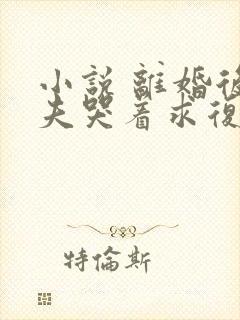 小説 離婚後
夫哭着求復
特倫斯